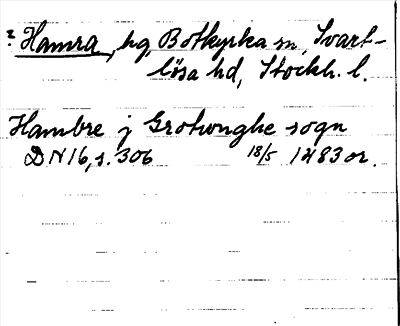 ? Hamra, hg, Botkyrka sn, Svart-
lösa hd, Stockh. l.
Hambre j Grotwnghe sogn
DN 16, s. 306 18/5 1483 or.